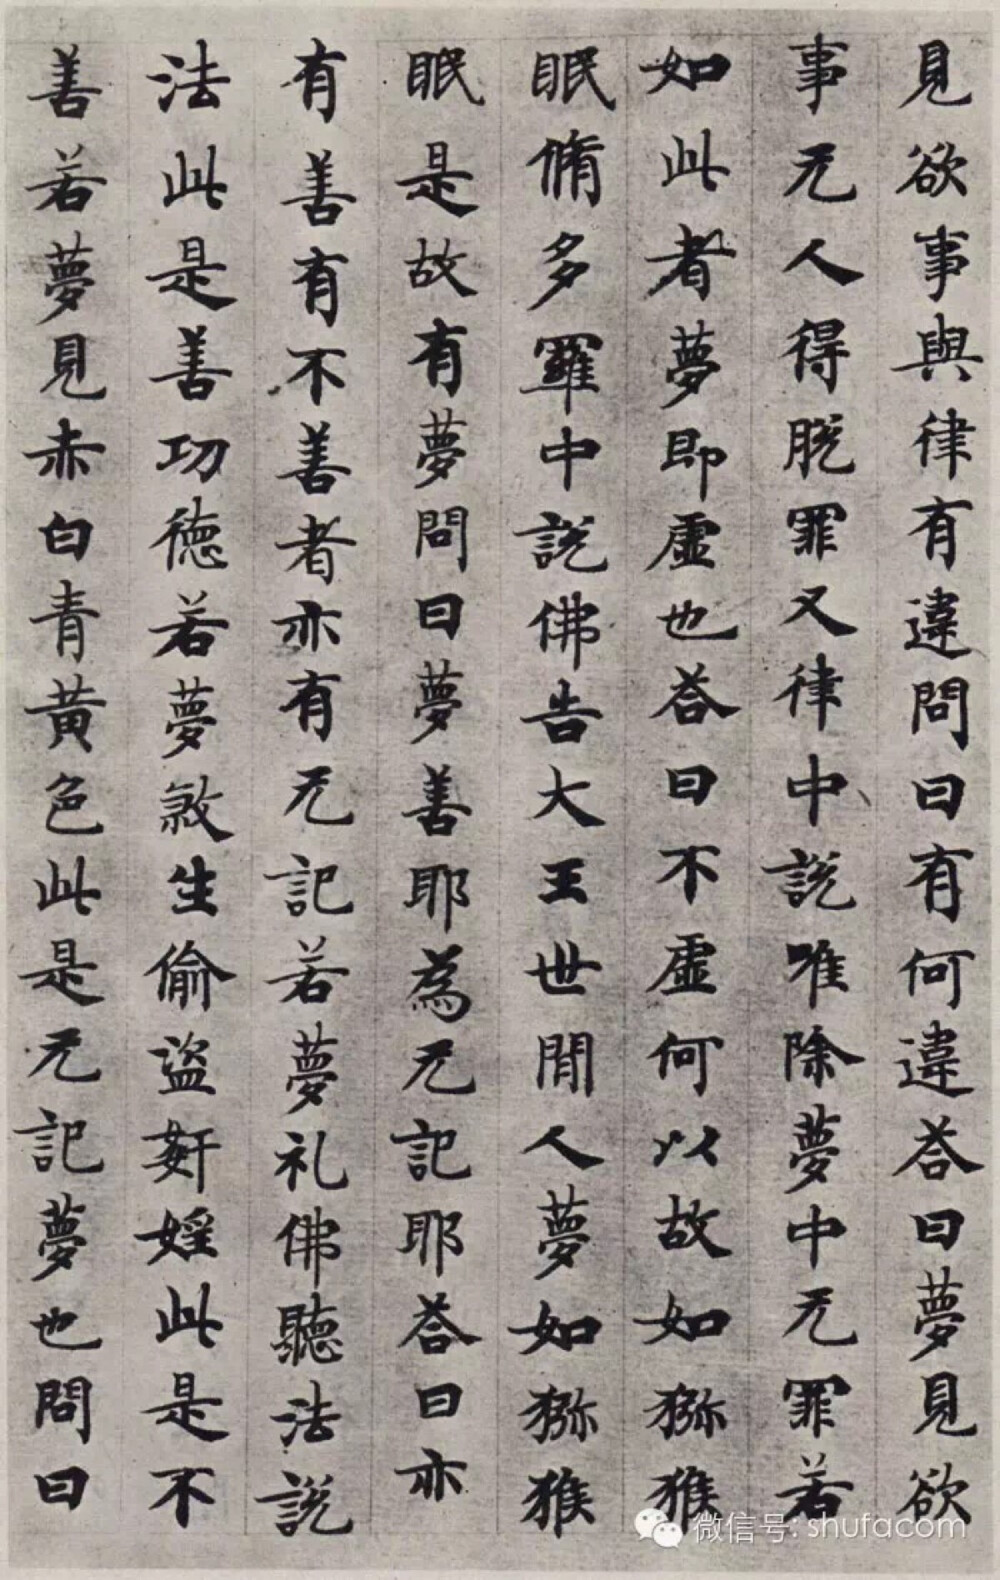 見欲事與律有違問曰有何違荅曰夢見欲
事无人得脫罪又律中說唯除夢中无罪若
如此者夢即虛也荅曰不虛何以故如猕猴
眠脩多羅中說佛告大王世間人夢如猕猴
眠是故有夢問曰夢善耶為无記耶荅曰亦
有善有不善者亦有无記若夢礼佛聽法說
法此是善功德若夢煞生偷盜姧婬此是不
善若夢見赤白青黃色此是无記夢也問曰
微信号: shufacom